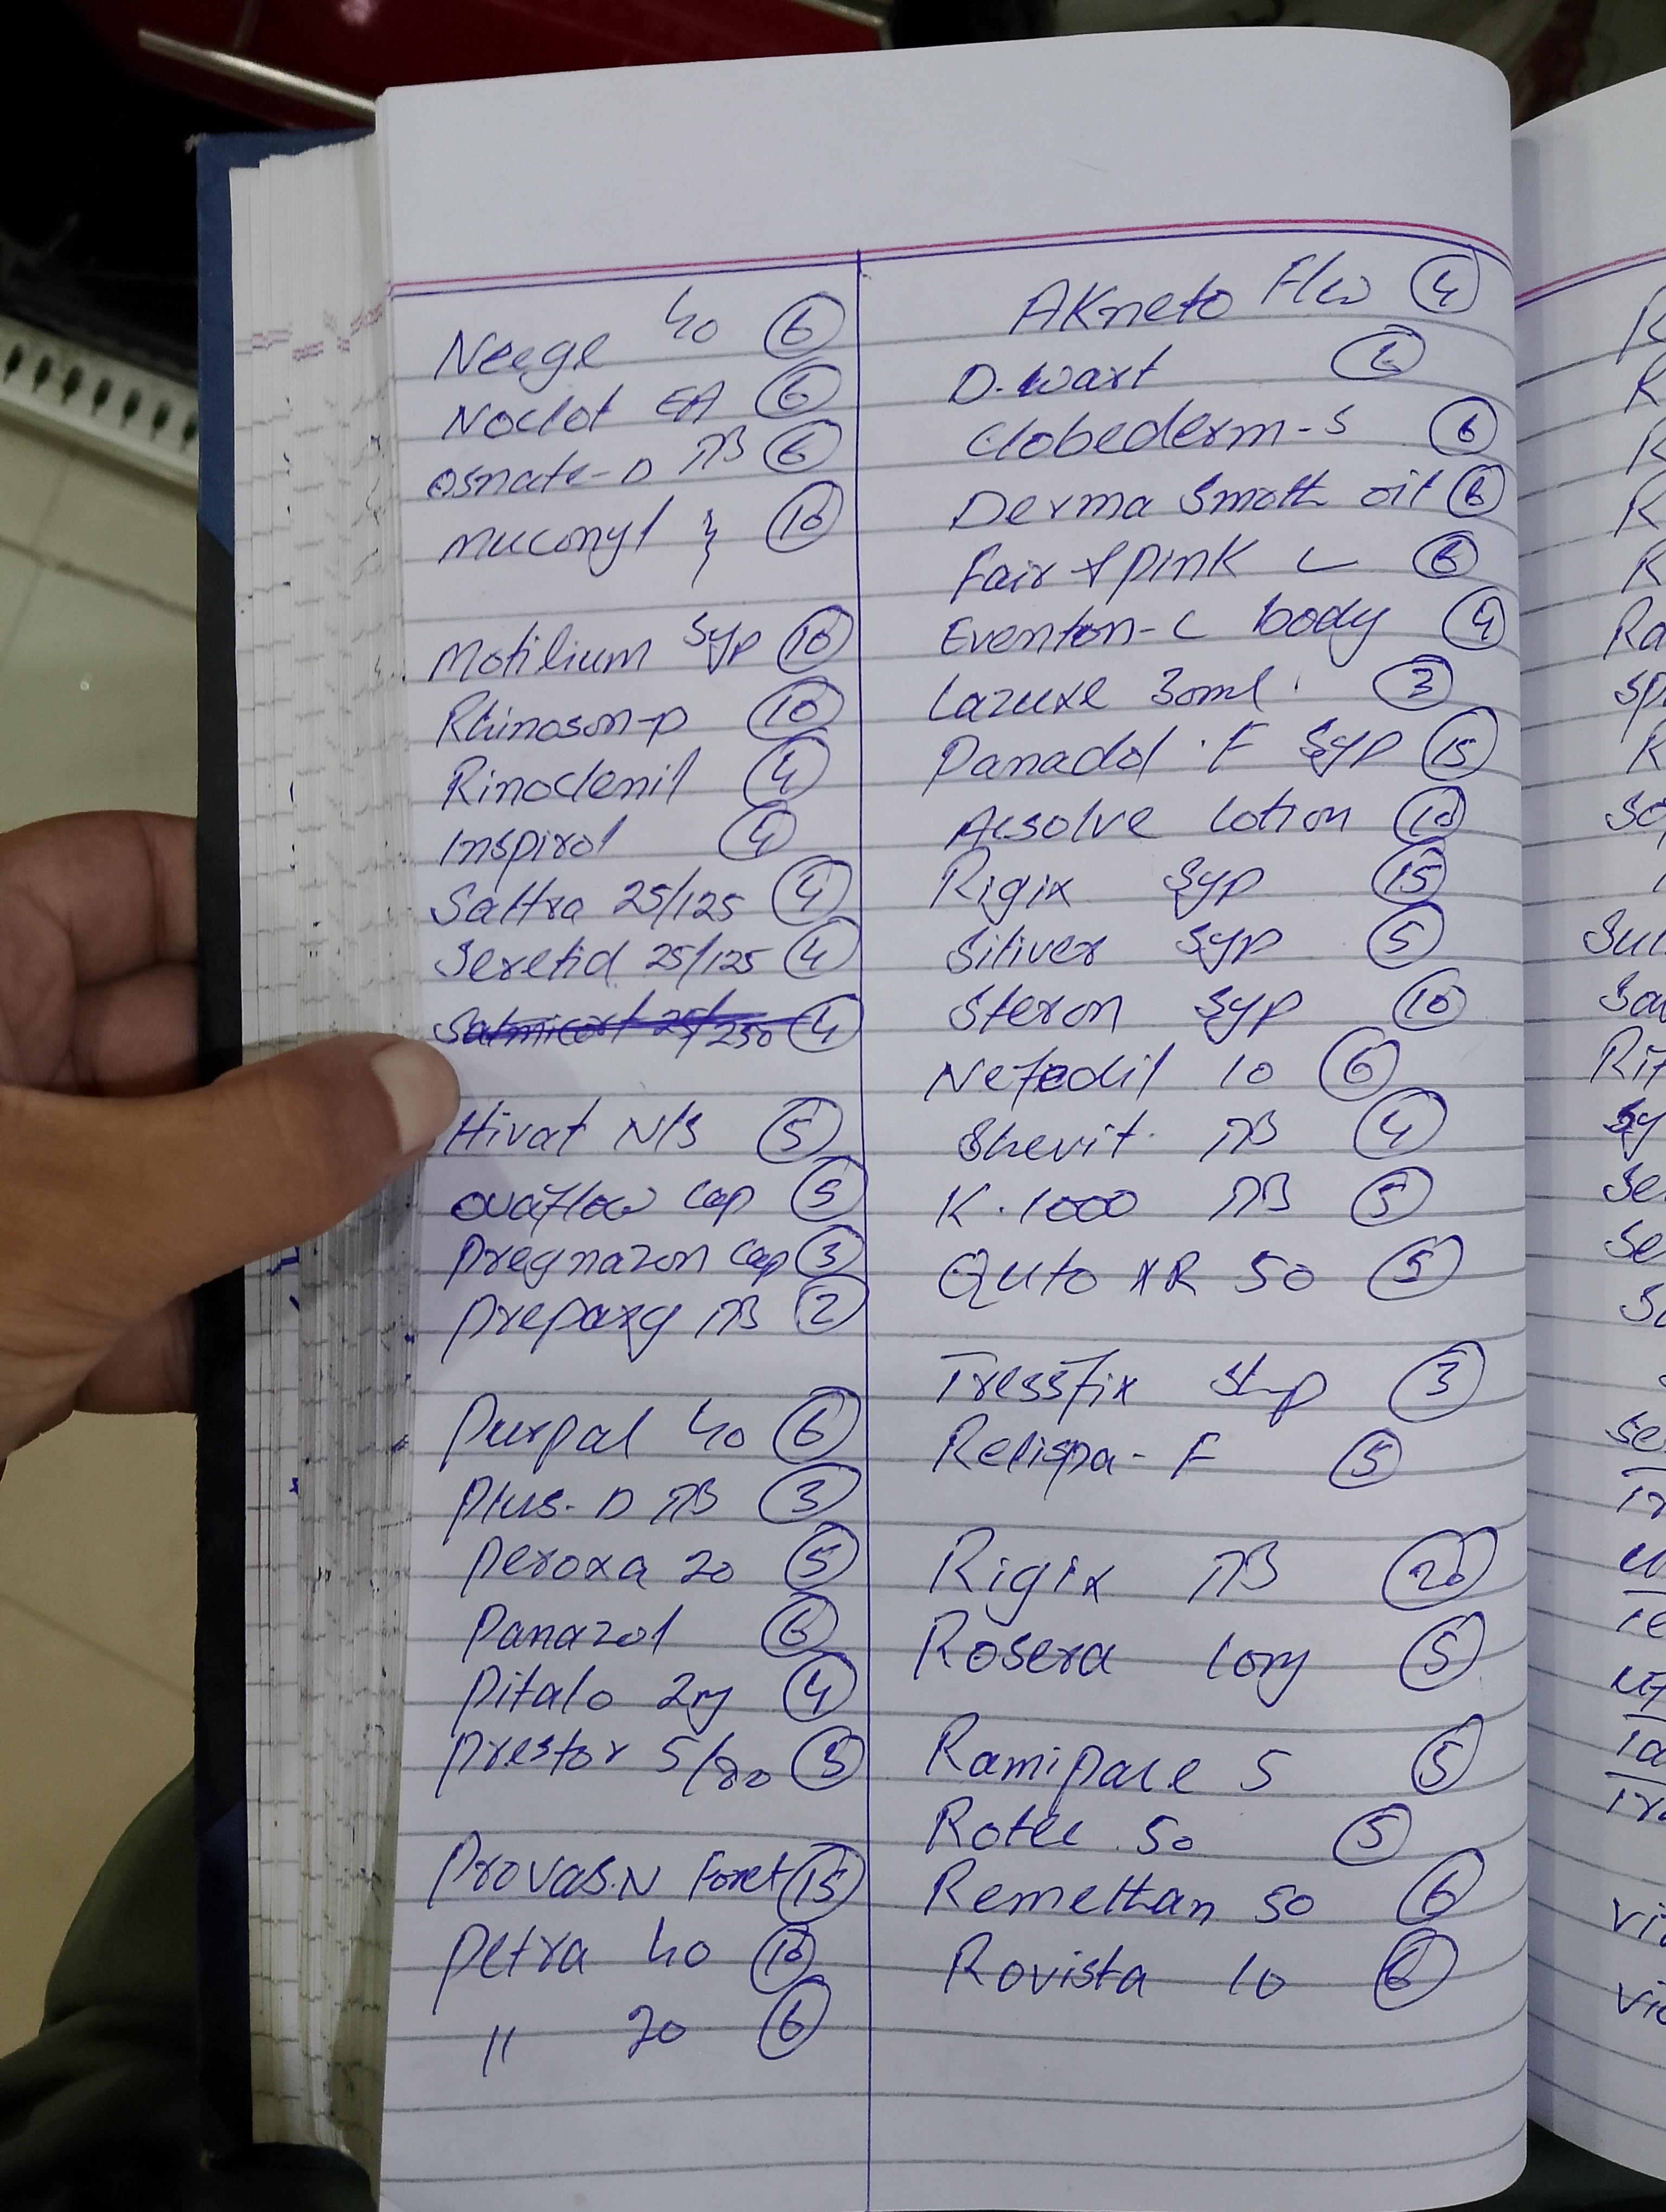 Neege 40 6
Noclot EA 6
Osnate-D TAB 6
Muconyl } 10
Motilium Syp 10
Rhinoson-P 10
Rinoclenil 4
Inspirol 4
Saltra 25/125 4
Seretid 25/125 4
Salmicort 25/250 4
Hivat N/S 5
Ovaflow Cap 5
Pregnazon Cap 3
TAB 2
Purpal 40 6
Plus-D TAB 3
Peroxa 20 5
Panazol 6
Pitalo 2mg 4
Prestor 5/80 3
Provas.N Foret 15
Petra 40 10
" 20 6
AKneto 4
D.wart 6
Clobederm-S 6
Derma Smoth oil 6
Fair & Pink 6
Eventon-C body 4
30ml 3
Panadol .F Syp 15
Acsolve Lotion 10
Rigix Syp 15
Siliver Syp 5
Steron Syp 10
10 6
Shevit. TAB 4
K.1000 TAB 5
Quto XR 50 5
Tressfix 3
Relispa-F 5
Rigix TAB 20
Rosera 10mg 5
Ramipace 5 5
Rotec 50 5
Remethan 50 6
Rovista 10 6